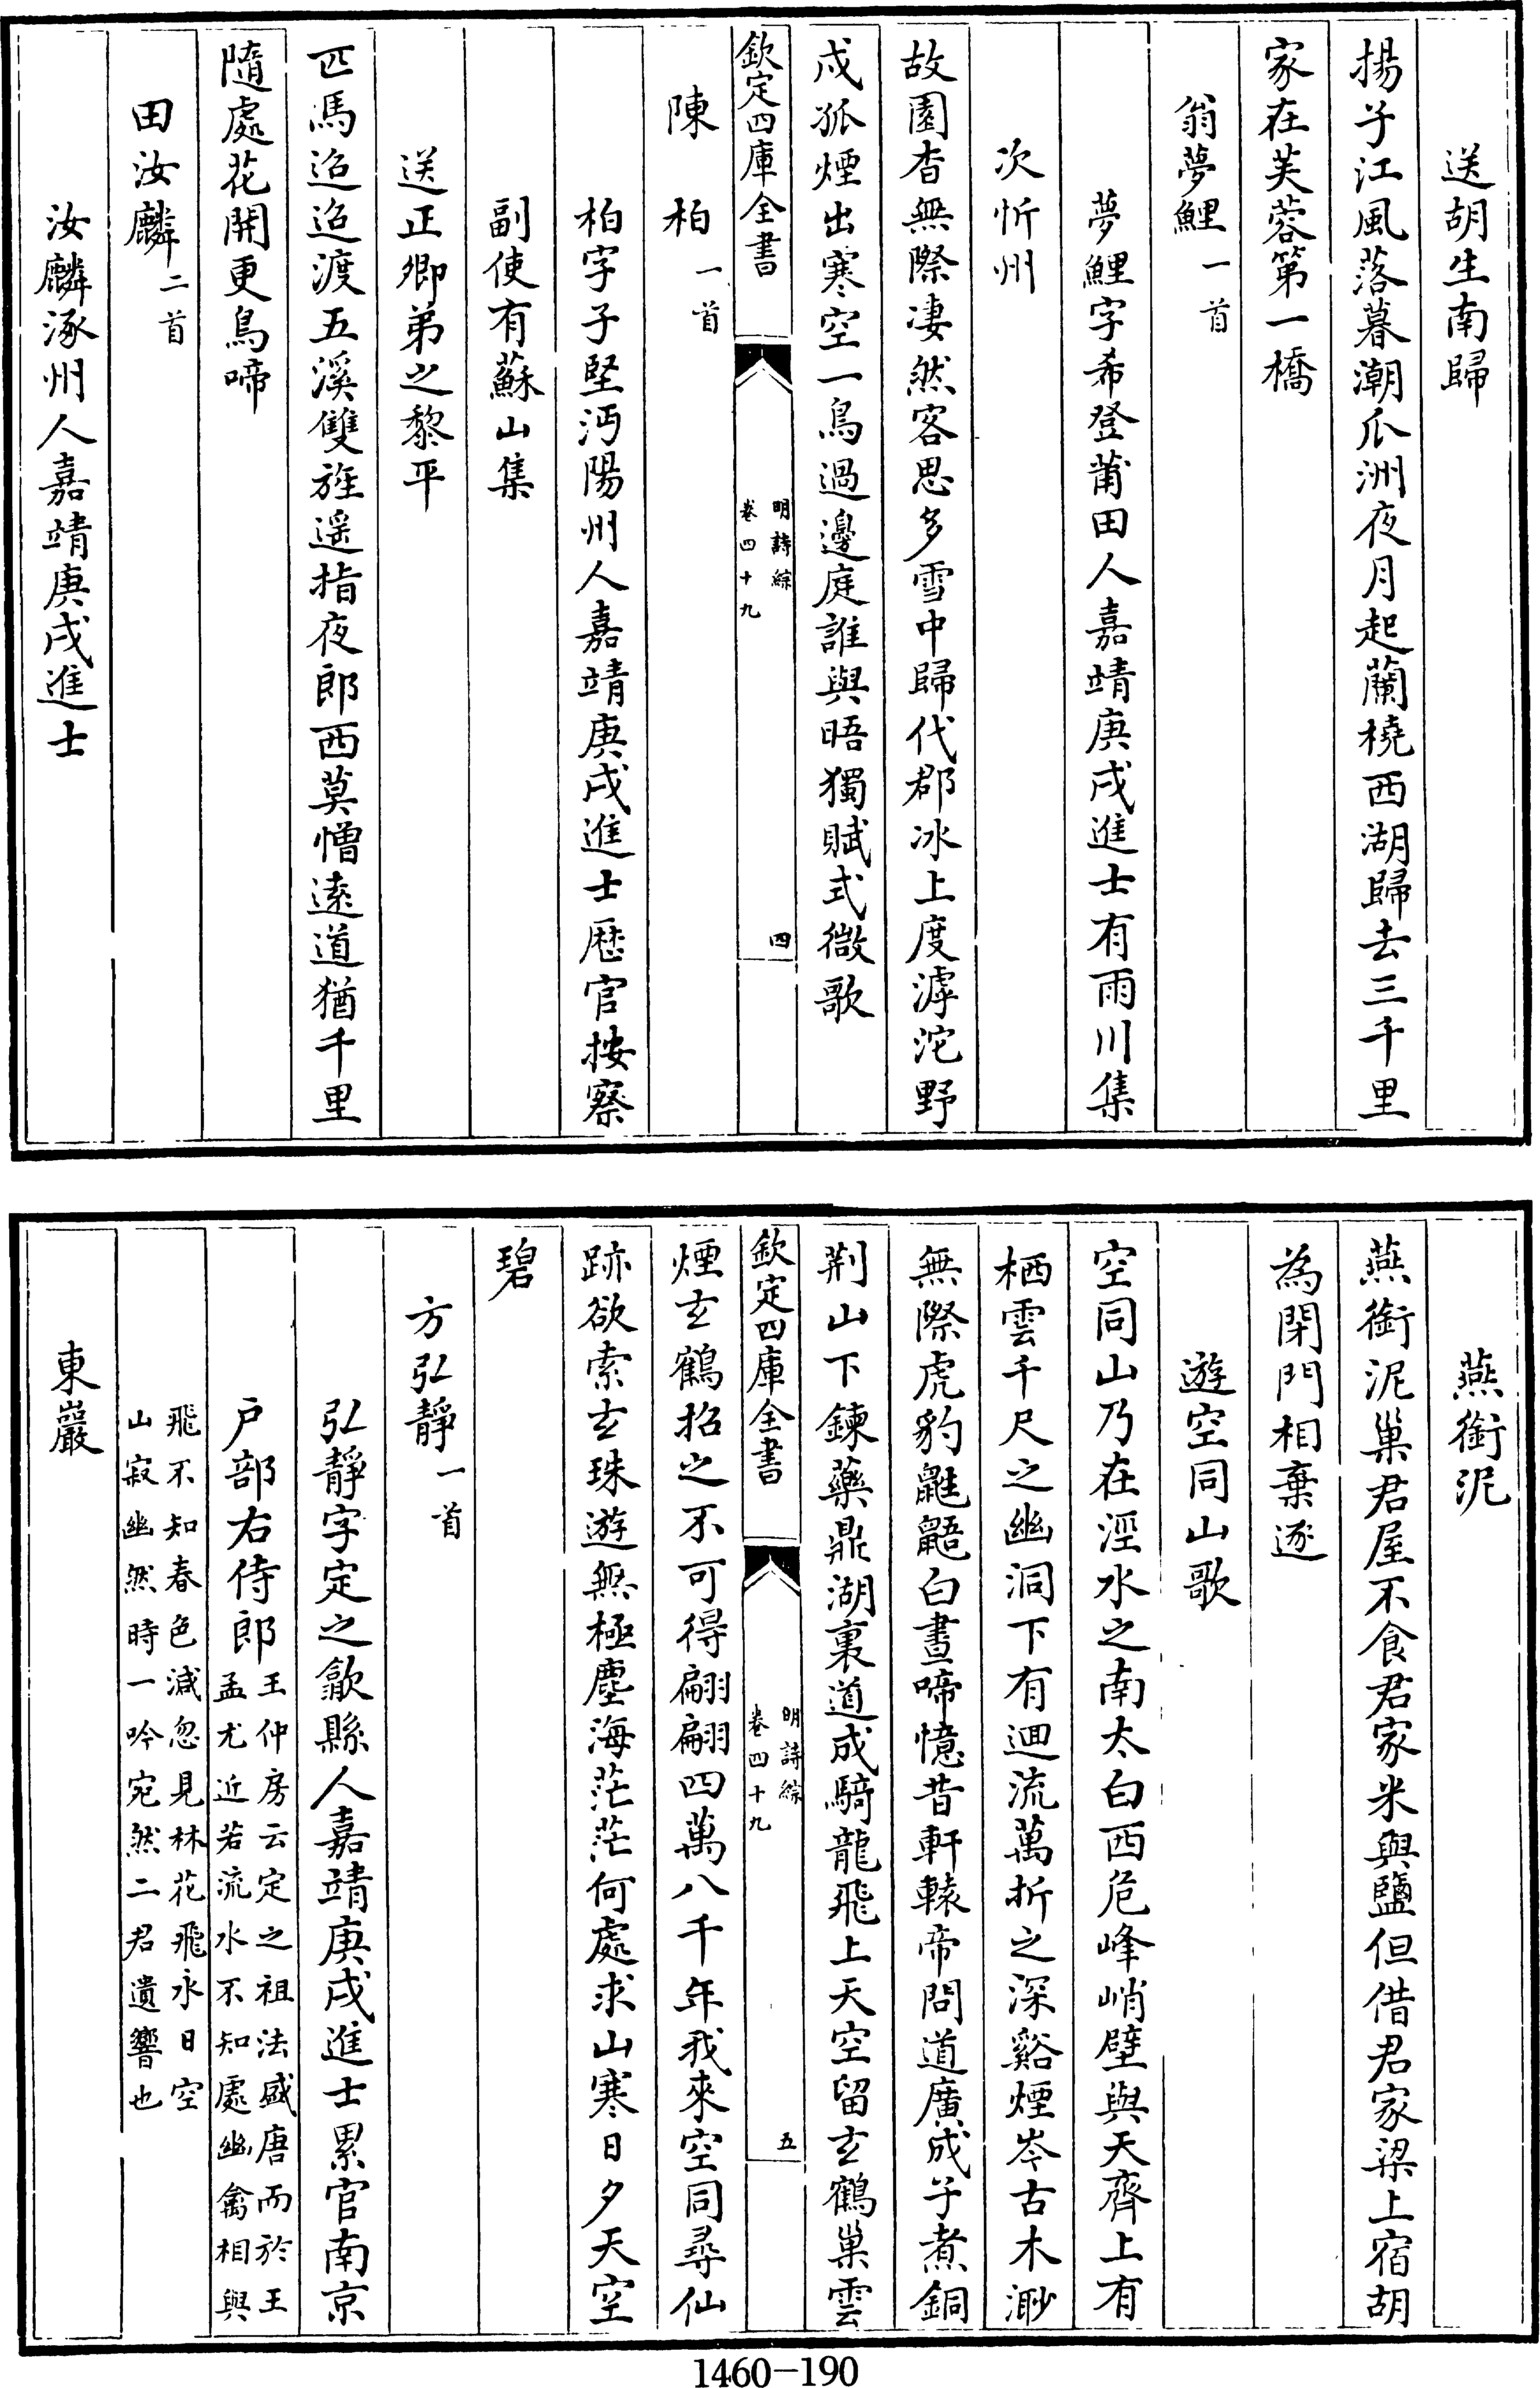 送胡生南歸
揚子江風落暮潮瓜洲夜月起蘭橈西湖歸去三千里
家在芙蓉第一橋
翁夢鯉一首
夢鯉字希登莆田人嘉靖庚戌進士有雨川集
次忻州
故園杳無際凄然客思多雪中歸代郡冰上度滹沱野
戍孤煙出寒空一鳥過邊庭誰與晤獨賦式微歌
欽定四庫全書
明詩綜
卷四十九
四
陳柏一首
柏字子堅沔陽州人嘉靖庚戌進士歷官按察
副使有蘇山集
送正卿弟之黎平
匹馬迢迢渡五溪雙旌遥指夜郎西莫憎逺道猶千里
隨處花開更鳥啼
田汝麟二首
汝麟涿州人嘉靖庚戌進士
燕銜泥
燕銜泥巢君屋不食君家米與鹽但借君家梁上宿胡
為閉門相棄逐
遊空同山歌
空同山乃在涇水之南太白西危峰峭壁與天齊上有
栖雲千尺之幽洞下有迴流萬折之深谿煙岑古木渺
無際虎豹鼪鼯白晝啼憶昔軒轅帝問道廣成子煮銅
荆山下鍊藥鼎湖裏道成騎龍飛上天空留玄鶴巢雲
欽定四庫全書
明詩綜
卷四十九
五
煙玄鶴招之不可得翩翩四萬八千年我來空同尋仙
跡欲索玄珠遊無極塵海茫茫何處求山寒日夕天空
碧
方弘靜一首
弘靜字定之歙縣人嘉靖庚戌進士累官南京
户部右侍郎王仲房云定之祖法盛唐而於王
孟尤近若流水不知處幽禽相與
飛不知春色減忽見林花飛永日空
山寂幽然時一吟宛然二君遺響也
東巖
1460-190